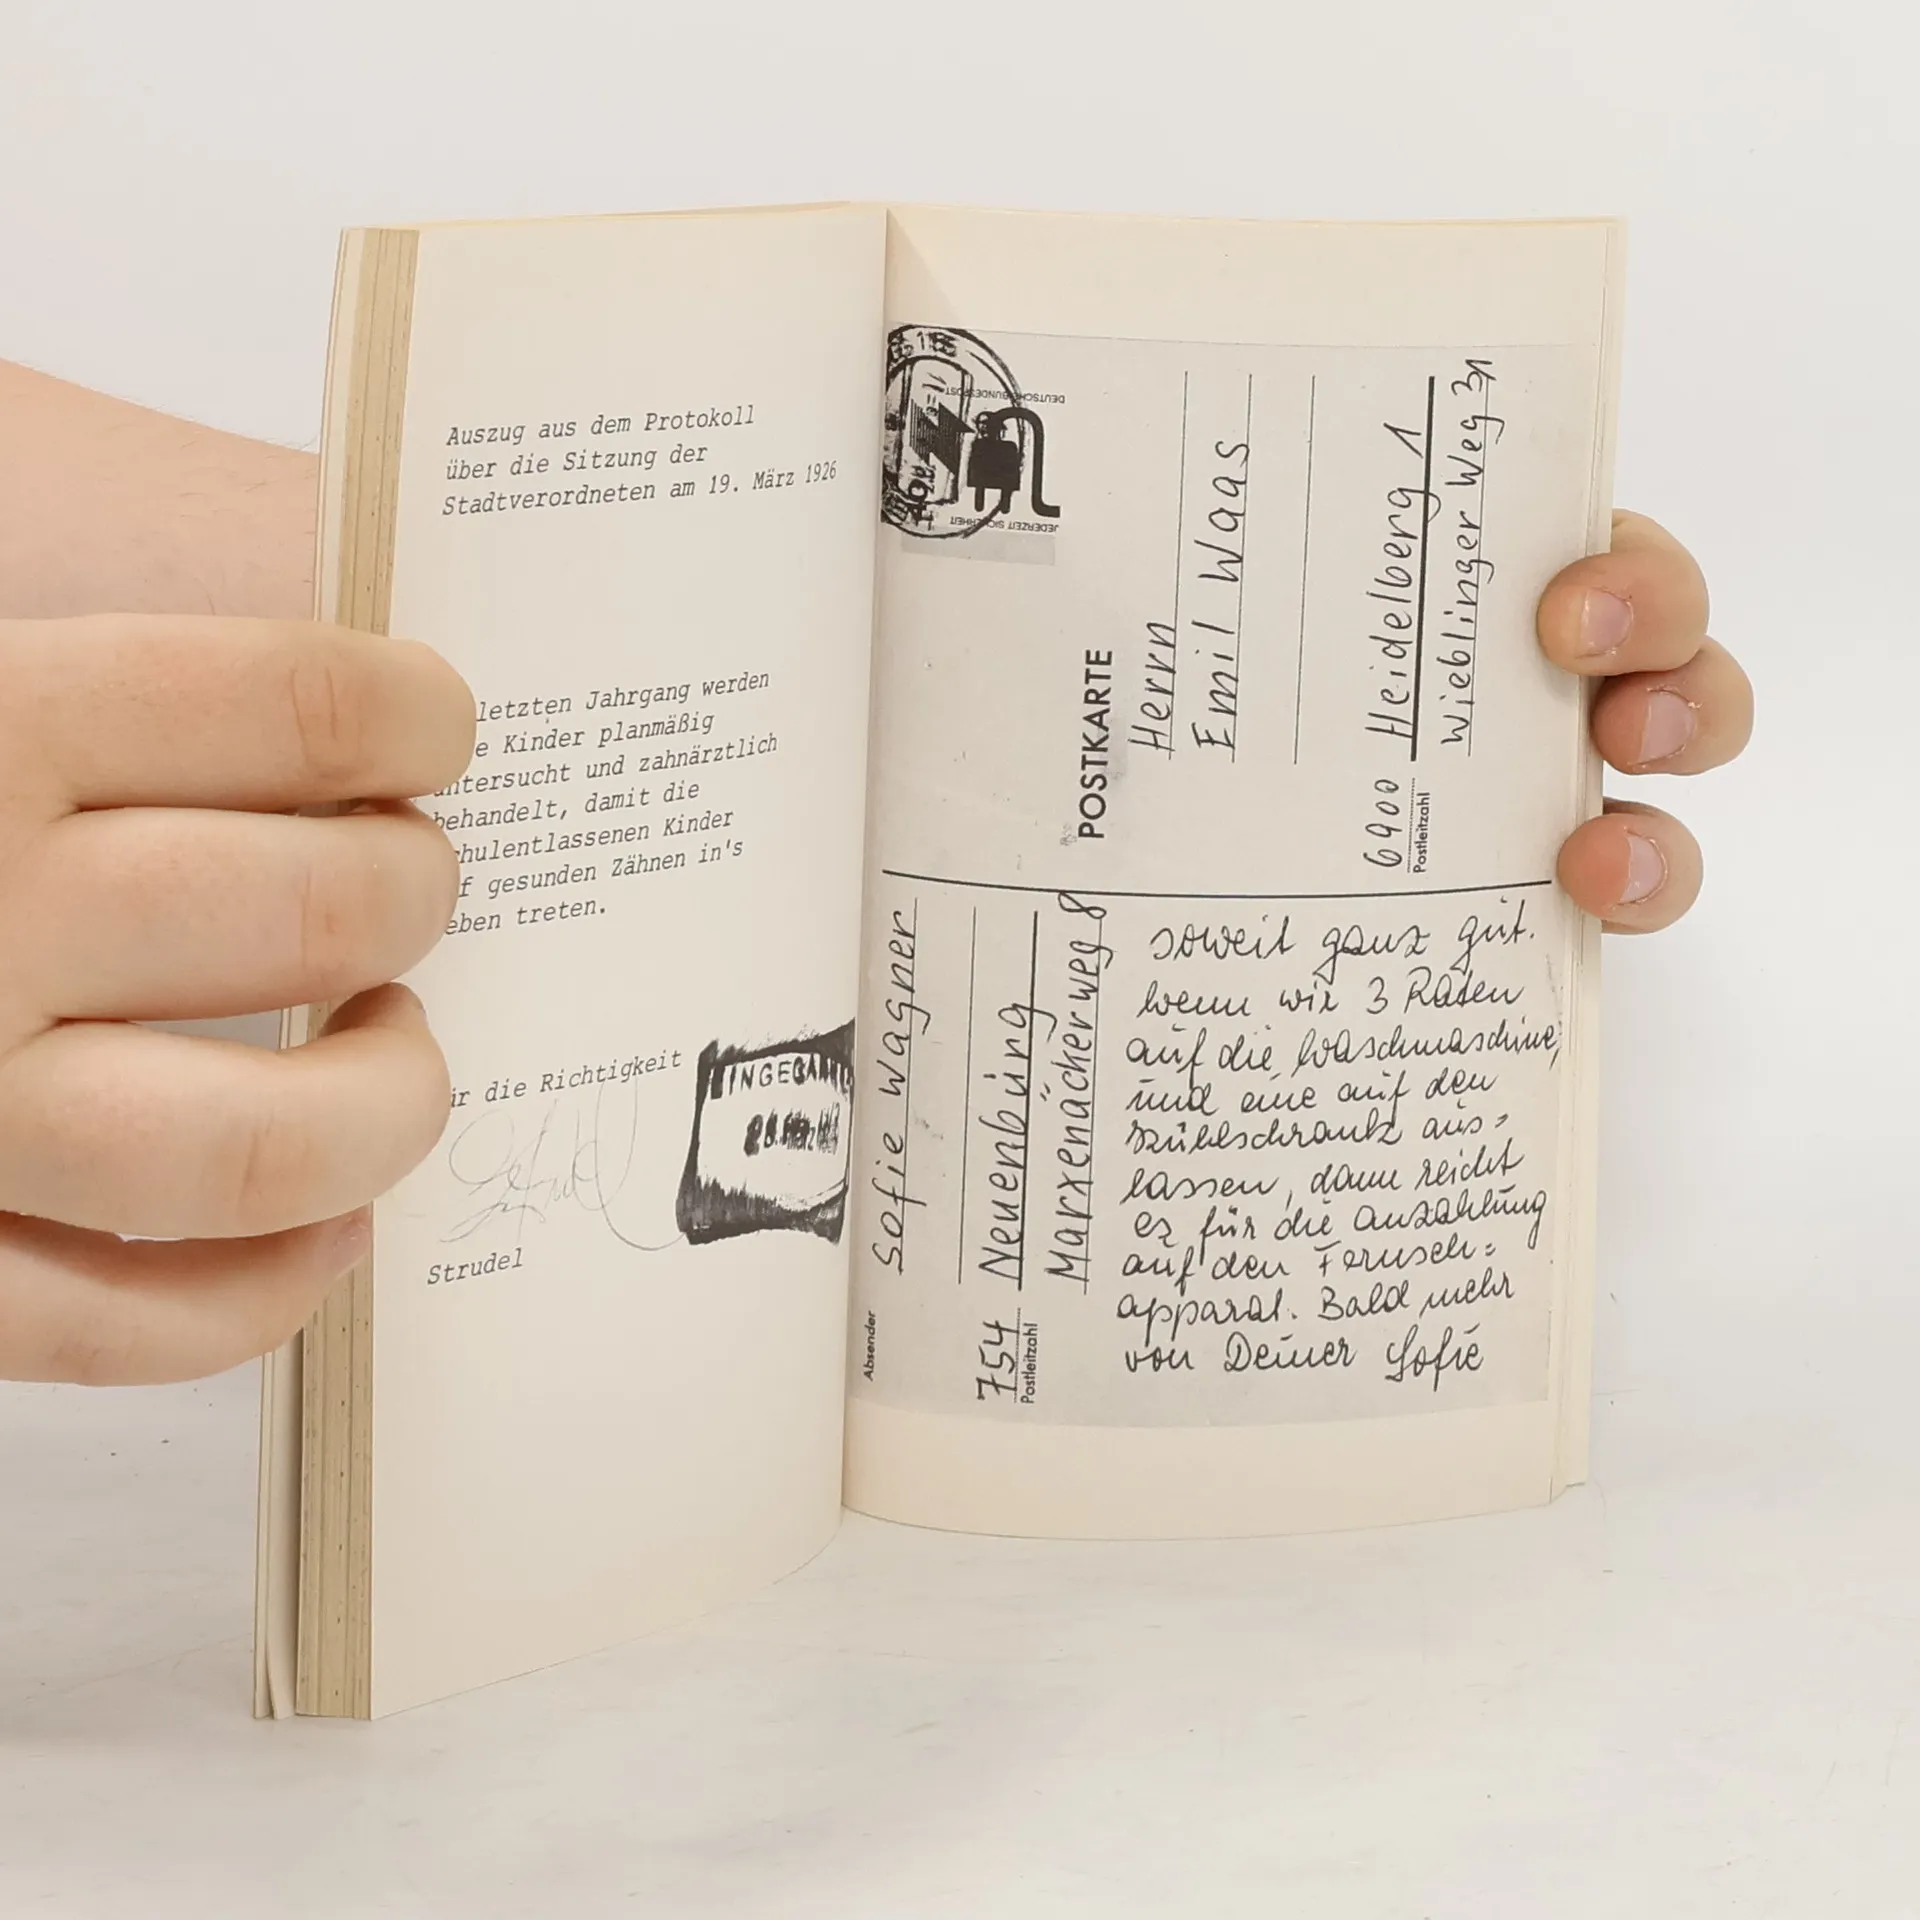 Auszug aus dem Protokoll
über die Sitzung der
Stadtverordneten am 19. März 1926
letzten Jahrgang werden
e Kinder planmäßig
untersucht und zahnärztlich
behandelt, damit die
chulentlassenen Kinder
f gesunden Zähnen in's
eben treten.
ür die Richtigkeit
EINGEGANGEN
Strudel
DEUTSCHE BUNDESPOST
JEDERZEIT SICHERHEIT
POSTKARTE
Herrn
Emil Waas
6900 Heidelberg 1
Postleitzahl
Wieblinger Weg 31
Absender
Sofie Wagner
754 Neuenbürg
Postleitzahl
Marxenäcker weg 8
soweit ganz gut.
Wenn wir 3 Raten
auf die Waschmaschine,
und eine auf den
Kühlschrank aus=
lassen, dann reicht
es für die Anzahlung
auf den Fernseh=
apparat. Bald mehr
von Deiner Sofie